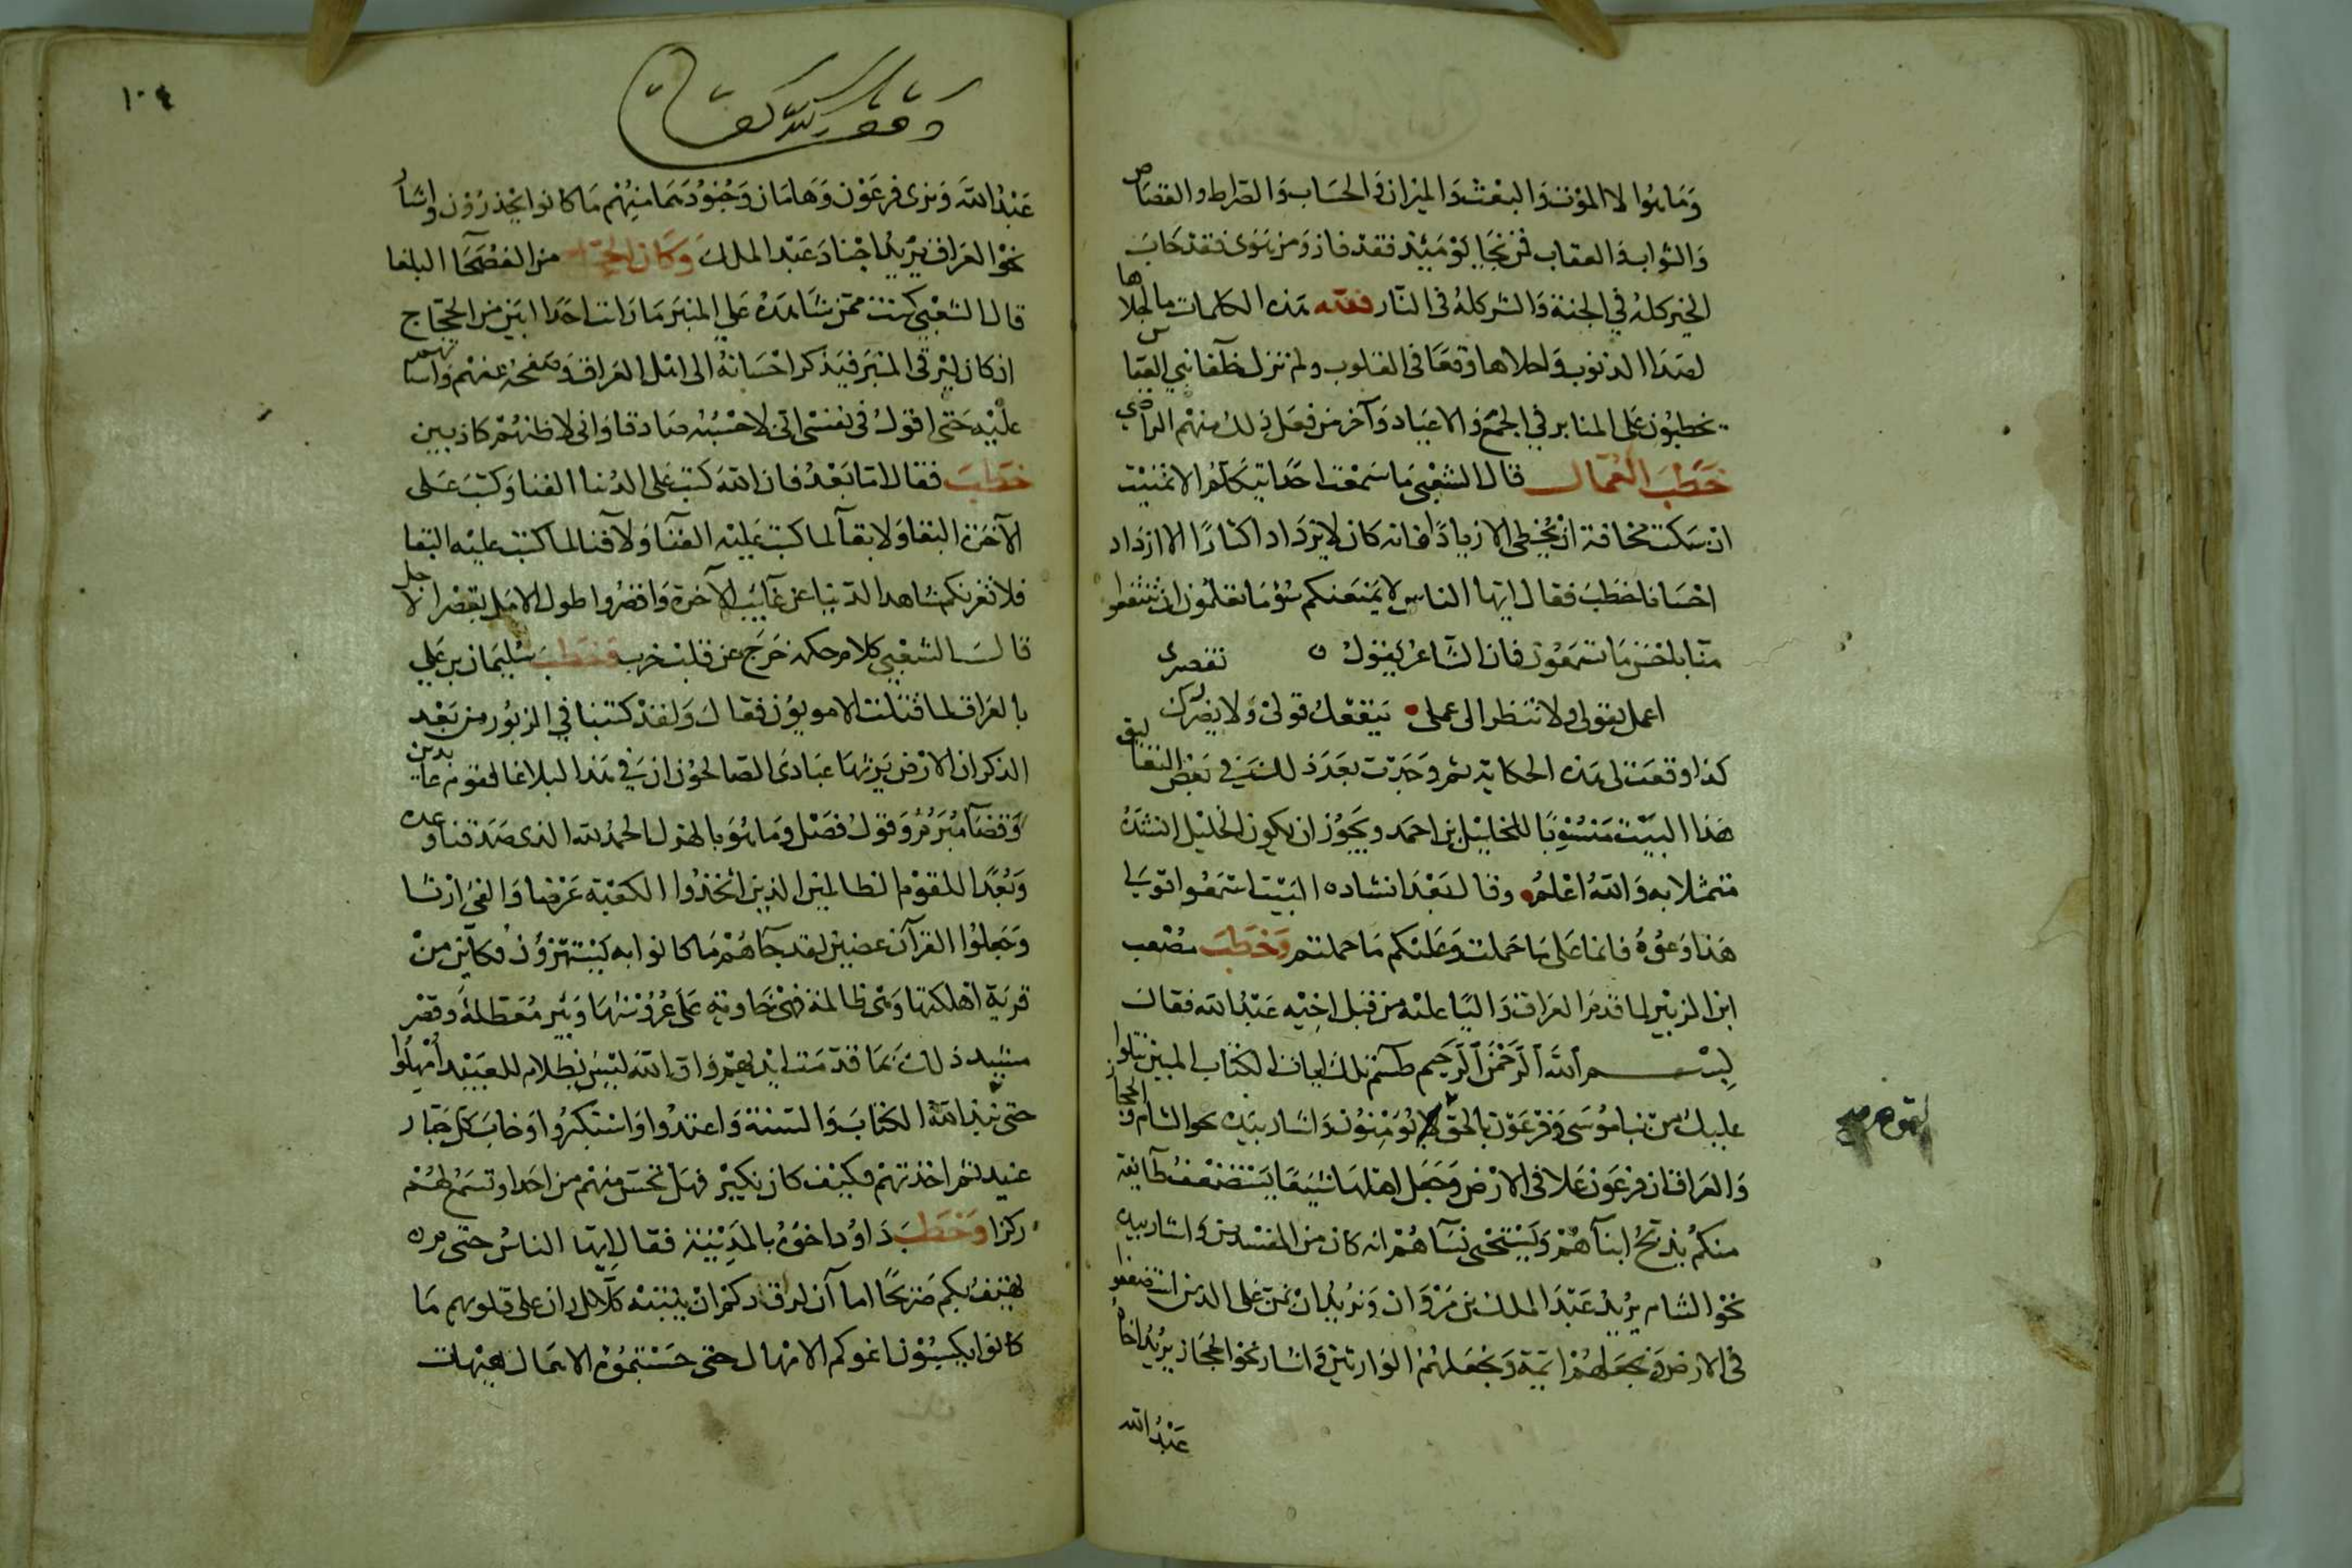 وَمَا هُوَ الا الموْت وَالبعْث وَالميزان وَالحسَاب وَالصّراط والقصاص
وَالثواب وَالعقاب فمن نجَا يَوْمَئِذ فقد فاز وَمن هَوَى فقد خَابَ
الخير كلهُ في الجنة وَالشر كلهُ في النّار فهذه الكلمات ما اجلاها
لصَدَا الذنوب وَاحلاها وَقعًا في القلوب ولم تزل خلفا بني العباس
يخطبُون عَلى المنابر في الجمَع وَالاعيَاد وَآخر من فعَل ذلك منهم الراضي
خطَب العُمال قال الشعْبي مَا سَمعْت احَدًا تكلم الا تمنيْت
ان سَكت مخافة انْ يُخطي الا زيادًا فانه كان لا يزدَاد اكثارًا الا ازدَاد
احْسَانا خطَبَ فقال ايهَا الناس لا يمنَعنكم سُوُ مَا تعْلمُون ان تنتفعوا
منا باحْسَن مَا تسمعُون فان الشاعر يَقولُ
اعمل بقولي ولا تنظر الى عملي ينفعْك قولي وَلا يضررْك تقصيرى
كذا وقعَت لي هذه الحكاية ثم وَجَدت بعَدَ ذلك في بَعْض التعاليق
هَذا البيْت مَنسُوبًا للخليْل بن احمَد ويَجُوز ان يكون الخليْل انشدَهُ
متمثلا به وَاللهُ اعْلمُ وقال بَعْدَ انشاده البيْت استمعُوا قولي
هَذا وَعُوهُ فانما عَلى مَا حَملت وَعَليكم مَا حملتم وَخطَبَ مصْعب
ابن الزبيْر لما قدمَ العرَاق وَاليًا عليه من قبَل اخيْه عَبْد الله فقال
بسم الله الرّحمن الرّحيم طسم تلك ايات الكتاب المبين نتلوا
عليك من نبا مُوسَى وَفرْعَوْن بالحق لقوم يُؤمنُون وَاشار بيَده نحو الشام والحجاز
وَالعرَاق ان فرْعَون عَلا في الارْض وَجَعَل اهلهَا شيَعًا يَسْتضعفُ طآئفة
منكمْ يذبّحُ ابنآهمْ وَيسْتحيى نسَآهُمْ انه كان من المفسْدين وَاشار بيده
نحْوَ الشام يُريْد عَبْدَ الملك بن مَرْوَان وَنريْد انْ نمُنّ عَلى الذين استضعفوا
في الارض وَنجعَلهمْ ائمة وَنجعَلهمْ الوَارثيْن وَاشار نحْوَ الحجَاز يُريْد اخاه
عَبْدُ الله
لقوم صح
١٠٤
عَبْدُ اللهَ وَنرى فرعَوْن وَهامَان وَجُنوْدهمَا منهُمْ مَا كانوا يحْذرُوْن وَاشارَ
نحْوَ العرَاق يُريْد اجنادَ عَبْد الملك وَكان الحجاج من الفصَحَا البلغا
قال الشعْبي كنت ممّن شاهَدَهُ عَلى المنبَر مَا رَايت احَدا ابيَن من الحجّاج
ان كان ليَرقى المنبَر فيَذكر احْسَانهُ الى اهْل العرَاق وَصفحَهُ عَنهُم وَاساءتهم
عليْه حَتى اقول في نفسْي انى لاحْسبُه صَادقا وَانى لاظنهُمْ كاذبيْن
خطَبَ فقال امّا بَعْدُ فان الله كتبَ عَلى الدُنيا الفنا وَكتبَ عَلى
الآخرَة البَقا وَلا بَقآ لما كتبَ عَليْه الفنآ وَلا فنا لما كتبَ عليْه البقا
فلا تغرّنكم شاهد الدّنيا عن غآئب الآخرة وَاقصرُوا طول الامَل بقصْر الاجل
قال الشعْبي كلام حكمة خَرَجَ عن قلب خرب وخطَبَ سُليْمَان بن عَلي
بالعرَاق لما قتلت الامويوُن فقالَ وَلقد كتبنا في الزبُور من بَعْد
الذكر ان الارْض يَرثهَا عبَادىَ الصّالحُوْن ان في هَذا لبلاغا لقوم عابدين
وَقضآ مُبرَمٌ وَقوْل فصَل ومَا هُوَ بالهزل الحمْد لله الذى صدَقنا وعده
وَبُعْدًا للقوْم الظالميْن الذين اتخذُوا الكعْبة غرَضا وَالفئ ارْثا
وَجَعلوا القرْآن عضين لقد حَآقَ بهمْ مَا كانوا به يَسْتهزؤن وكأين منْ
قريَة اهْلكتهَا وَهى ظالمة فهْى خَاوية عَلى عُرُوشهَا وَبئر مُعَطلة وَقصْر
مشيْد ذلك بمَا قدّمَت ايْديهمْ وَانّ الله ليْسَ بظلام للعَبيْد اُمهلوا
حتى نبذوا الكتابَ وَالسنة وَاعتدْوا وَاسْتكبرُوا وَخابَ كل جَبّار
عنيد ثم اخذتهم فكيْف كان نكيْر فهَل تحسّ منهُمْ من احَد او تسْمَع لهُمْ
ركزا وَخطَبَ دَاوُد اخوُهُ بالمَدينة فقال ايهَا الناسُ حَتى مَ
يَهتف بكم صَريخًا اما آن لراقدكم انْ ينتبه كلّا بل ران على قلوبهم مَا
كانوا يكسبُوْن اغركم الامْهال حتى حَسبْتمُوهُ الاهمَال هيْهات